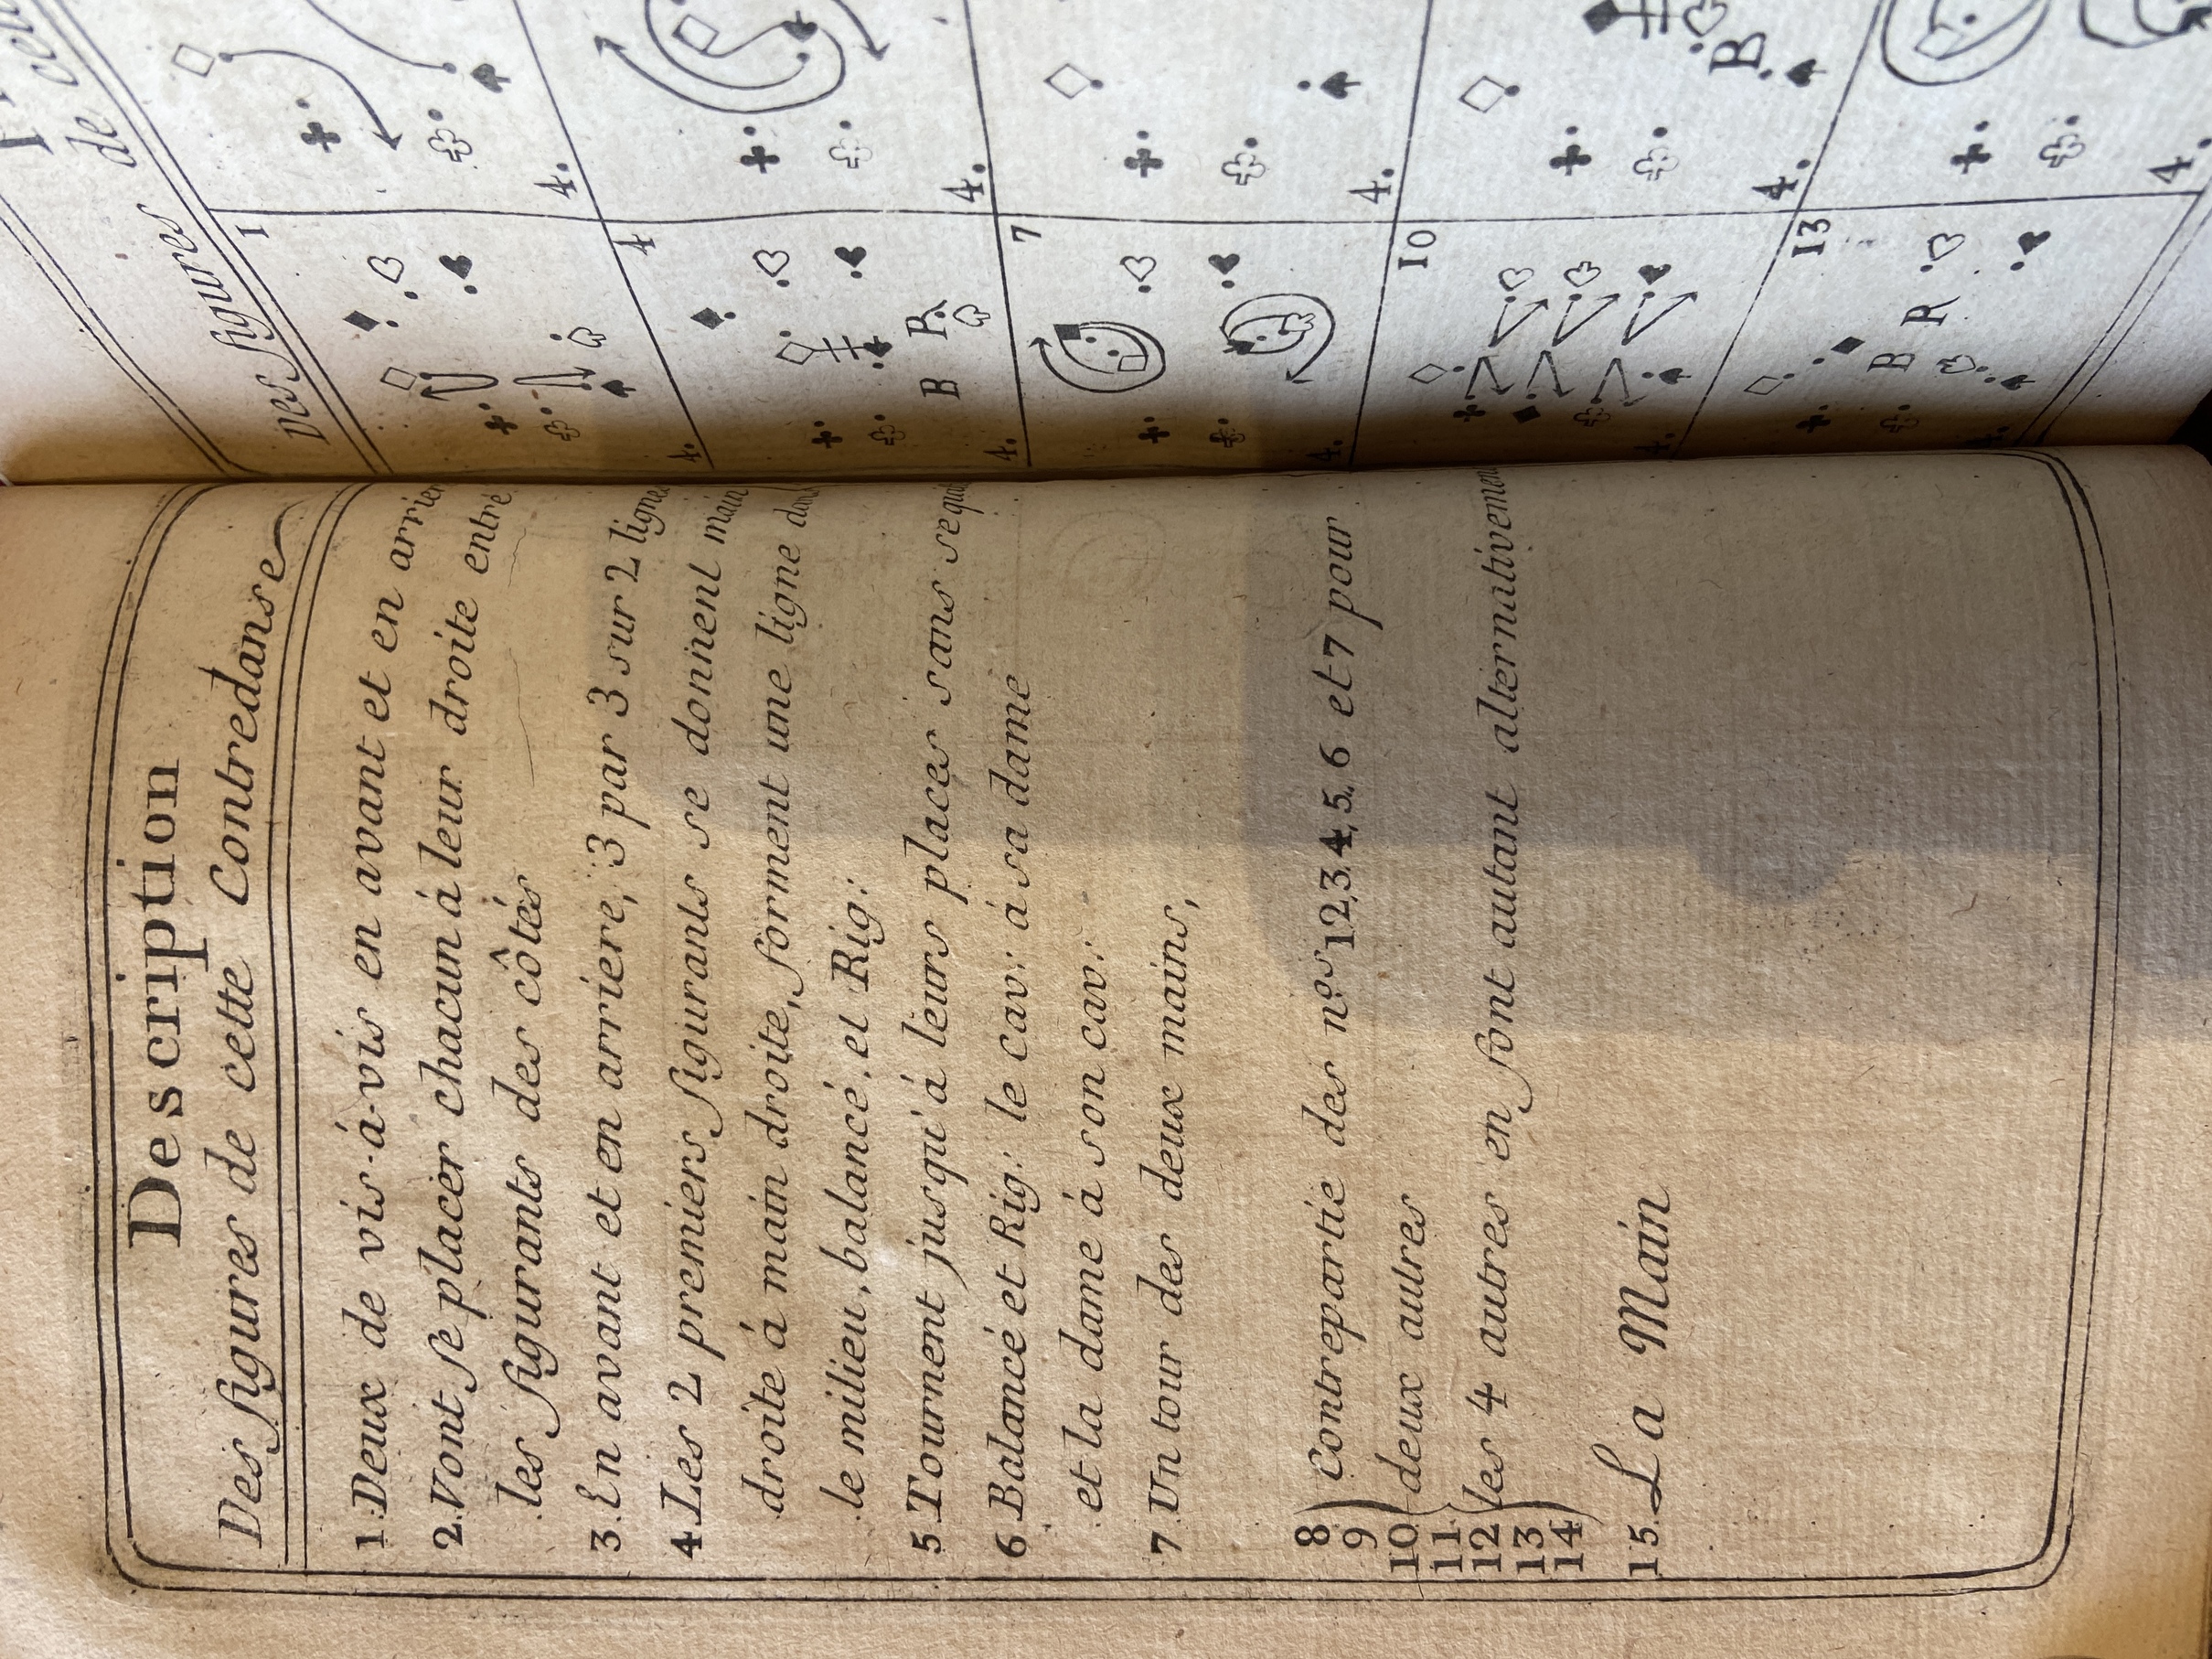 Description
Des figures de cette Contredanse
1. Deux de vis-á-vis en avant et en arrier
2. Vont se placer chacun á leur droite entre
les figurants des côtés
3. En avant et en arriere, 3 par 3 sur 2 ligne
4. Les 2 premiers figurants se donnent main
droite á main droite, forment une ligne dans
le milieu, balancé, et Rig:
5 Tournent jusqu'á leurs places sans se quit
6 Balancé et Rig: le cav: á sa dame
et la dame á son cav:
7 Un tour des deux mains,
8
9
10
11
12
13
14
Contrepartie des nos 1,2,3,4,5,6 et 7 pour
deux autres
les 4 autres en font autant alternativement
15. La Main
de
Des figures
1
4.
4.
4
B R
4.
4.
7
4.
4.
10
B
4.
4.
13
B R
4.